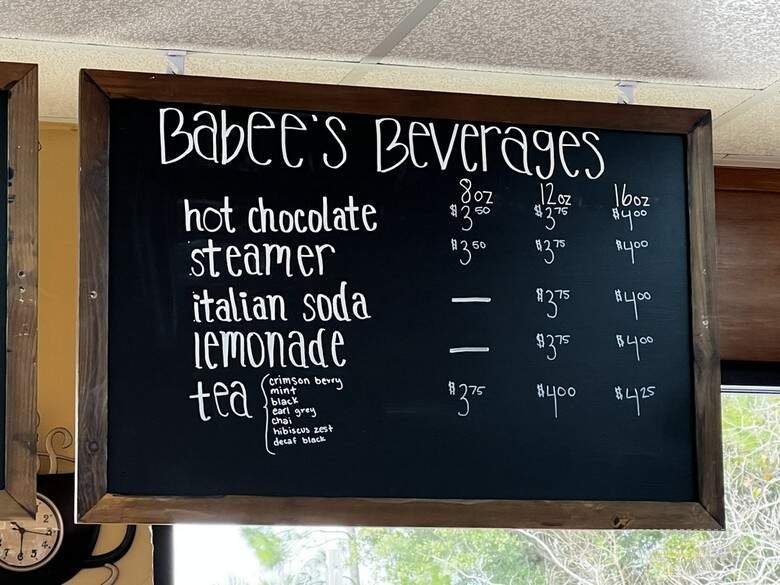 Babee's Beverages
8oz 12oz 16oz
hot chocolate $3.50 $3.75 $4.00
steamer $3.50 $3.75 $4.00
italian soda — $3.75 $4.00
lemonade — $3.75 $4.00
tea $3.75 $4.00 $4.25
crimson berry
mint
black
earl grey
chai
hibiscus zest
decaf black
2
3
4
5
6
7